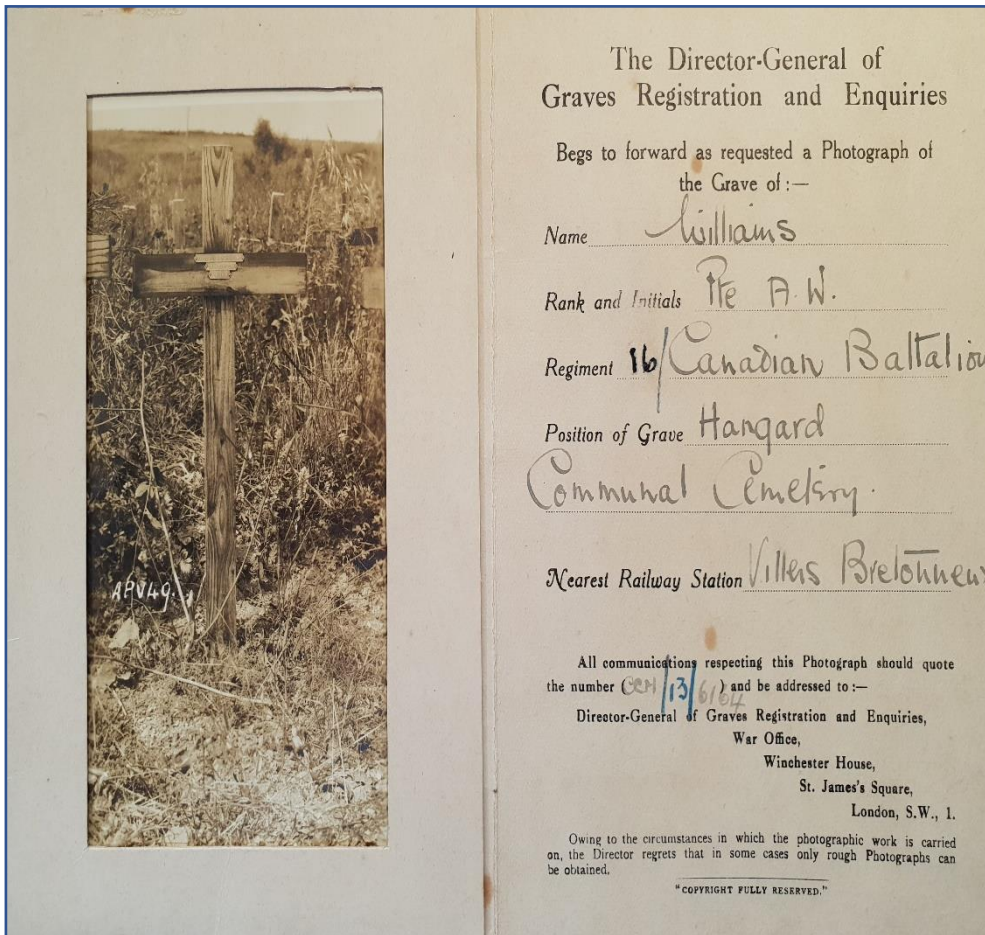 APV49.
The Director-General of
Graves Registration and Enquiries
Begs to forward as requested a Photograph of
the Grave of :—
Name Williams
Rank and Initials Pte A.W.
Regiment 16/Canadian Battalion
Position of Grave Hangard
Communal Cemetery.
Nearest Railway Station Villers Bretonneux
All communications respecting this Photograph should quote
the number (CCM/13/6164) and be addressed to :—
Director-General of Graves Registration and Enquiries,
War Office,
Winchester House,
St. James's Square,
London, S.W., 1.
Owing to the circumstances in which the photographic work is carried
on, the Director regrets that in some cases only rough Photographs can
be obtained.
"COPYRIGHT FULLY RESERVED."